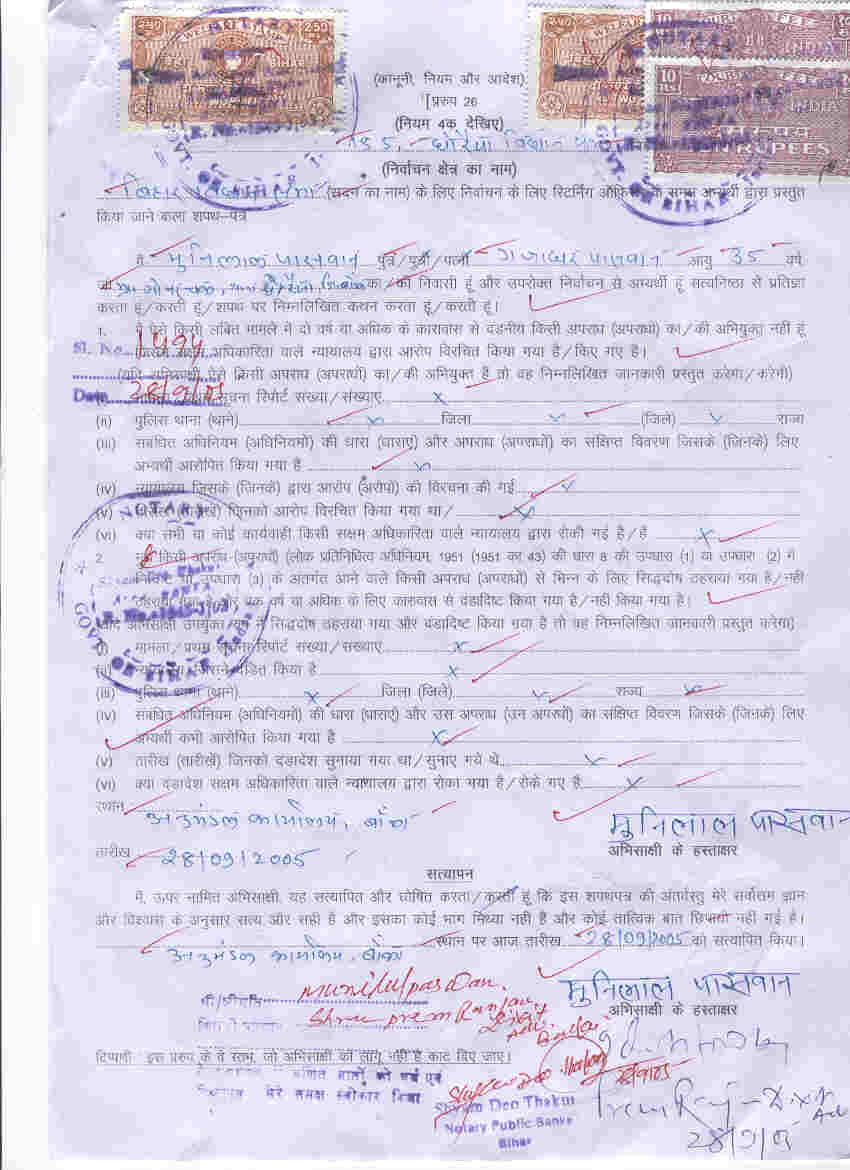 २५० WELFARE STAMP 2.50
BIHAR
10 COURT FEE
INDIA
दस रुपये
TEN RUPEES
(कानूनी, नियम और आदेश)
[प्ररुप 26
(नियम 4क देखिए)
विधान
(निर्वाचन क्षेत्र का नाम)
बिहार (सदन का नाम) के लिए निर्वाचन के लिए रिटर्निंग के समक्ष अभ्यर्थी द्वारा प्रस्तुत
किया जाने वाला शपथ-पत्र
मैं मुनिलाल पासवान पुत्र/पुत्री/पत्नी गजाधर पासवान आयु 35 वर्ष
का/की निवासी हूं और उपरोक्त निर्वाचन से अभ्यर्थी हूं सत्यनिष्ठा से प्रतिज्ञा
करता हूं/करती हूं/शपथ पर निम्नलिखित कथन करता हूं/करती हूं।
1. मैं ऐसे किसी लंबित मामले में दो वर्ष या अधिक के कारावास से दंडनीय किसी अपराध (अपराधों) का/की अभियुक्त नहीं हूं
Sl. No. अधिकारिता वाले न्यायालय द्वारा आरोप विरचित किया गया है/किए गए है।
ऐसे किसी अपराध (अपराधों) का/की अभियुक्त है तो वह निम्नलिखित जानकारी प्रस्तुत करेगा/करेगी)
Date 28/9/05 सूचना रिपोर्ट संख्या/संख्याएं x
(ii) पुलिस थाना (थाने) जिला (जिले) राज्य
(iii) संबंधित अधिनियम (अधिनियमों) की धारा (धाराएं) और अपराध (अपराधों) का संक्षिप्त विवरण जिसके (जिनके) लिए
अभ्यर्थी आरोपित किया गया है
(iv) न्यायालय जिसके (जिनके) द्वारा आरोप (आरोपों) की विरचना की गई
(v) जिनको आरोप विरचित किया गया था/ x
(vi) क्या सभी या कोई कार्यवाही किसी सक्षम अधिकारिता वाले न्यायालय द्वारा रोकी गई है/हैं x
2. किसी अपराध (अपराधों) (लोक प्रतिनिधित्व अधिनियम, 1951 (1951 का 43) की धारा 8 की उपधारा (1) या उपधारा (2) में
निर्दिष्ट या उपधारा (3) के अंतर्गत आने वाले किसी अपराध (अपराधों) से भिन्न के लिए सिद्धदोष ठहराया गया है/नहीं
ठहराया गया है और एक वर्ष या अधिक के लिए कारावास से दंडादिष्ट किया गया है/नहीं किया गया है।
अभिसाक्षी उपर्युक्त में सिद्धदोष ठहराया गया और दंडादिष्ट किया गया है तो वह निम्नलिखित जानकारी प्रस्तुत करेगा)
मामला/प्रथम सूचना रिपोर्ट संख्या/संख्याएं x
जिसने दंडित किया है x
(iii) पुलिस थाना (थाने) x जिला (जिले) राज्य
(iv) संबंधित अधिनियम (अधिनियमों) की धारा (धाराएं) और उस अपराध (उन अपराधों) का संक्षिप्त विवरण जिसके (जिनके) लिए
अभ्यर्थी कभी आरोपित किया गया है x
(v) तारीख (तारीखें) जिनको दंडादेश सुनाया गया था/सुनाए गये थे
(vi) क्या दंडादेश सक्षम अधिकारिता वाले न्यायालय द्वारा रोका गया है/रोके गए है x
NOTARY
GOVT. OF BIHAR
स्थान अनुमंडल कार्यालय, बाँका
मुनिलाल पासवान
तारीख 28/09/2005
अभिसाक्षी के हस्ताक्षर
सत्यापन
मैं, ऊपर नामित अभिसाक्षी, यह सत्यापित और घोषित करता/करती हूं कि इस शपथपत्र की अंतर्वस्तु मेरे सर्वोत्तम ज्ञान
और विश्वास के अनुसार सत्य और सही है और इसका कोई भाग मिथ्या नहीं है और कोई तात्विक बात छिपायी नहीं गई है।
अनुमंडल कार्यालय, बाँका स्थान पर आज तारीख 28/09/2005 को सत्यापित किया।
मुनिलाल पासवान
अभिसाक्षी के हस्ताक्षर
श्री/श्रीमति Munilal Paswan
Shree Prem Ranjan
टिप्पणी: इस प्ररुप के वे स्तंभ, जो अभिसाक्षी को लागू नहीं है काट दिए जाए।
वर्णित बातों को सही एवं
मेरे समक्ष स्वीकार किया
28/9/05
Shyam Deo Thakur
Notary Public Banka
Bihar
28/9/05